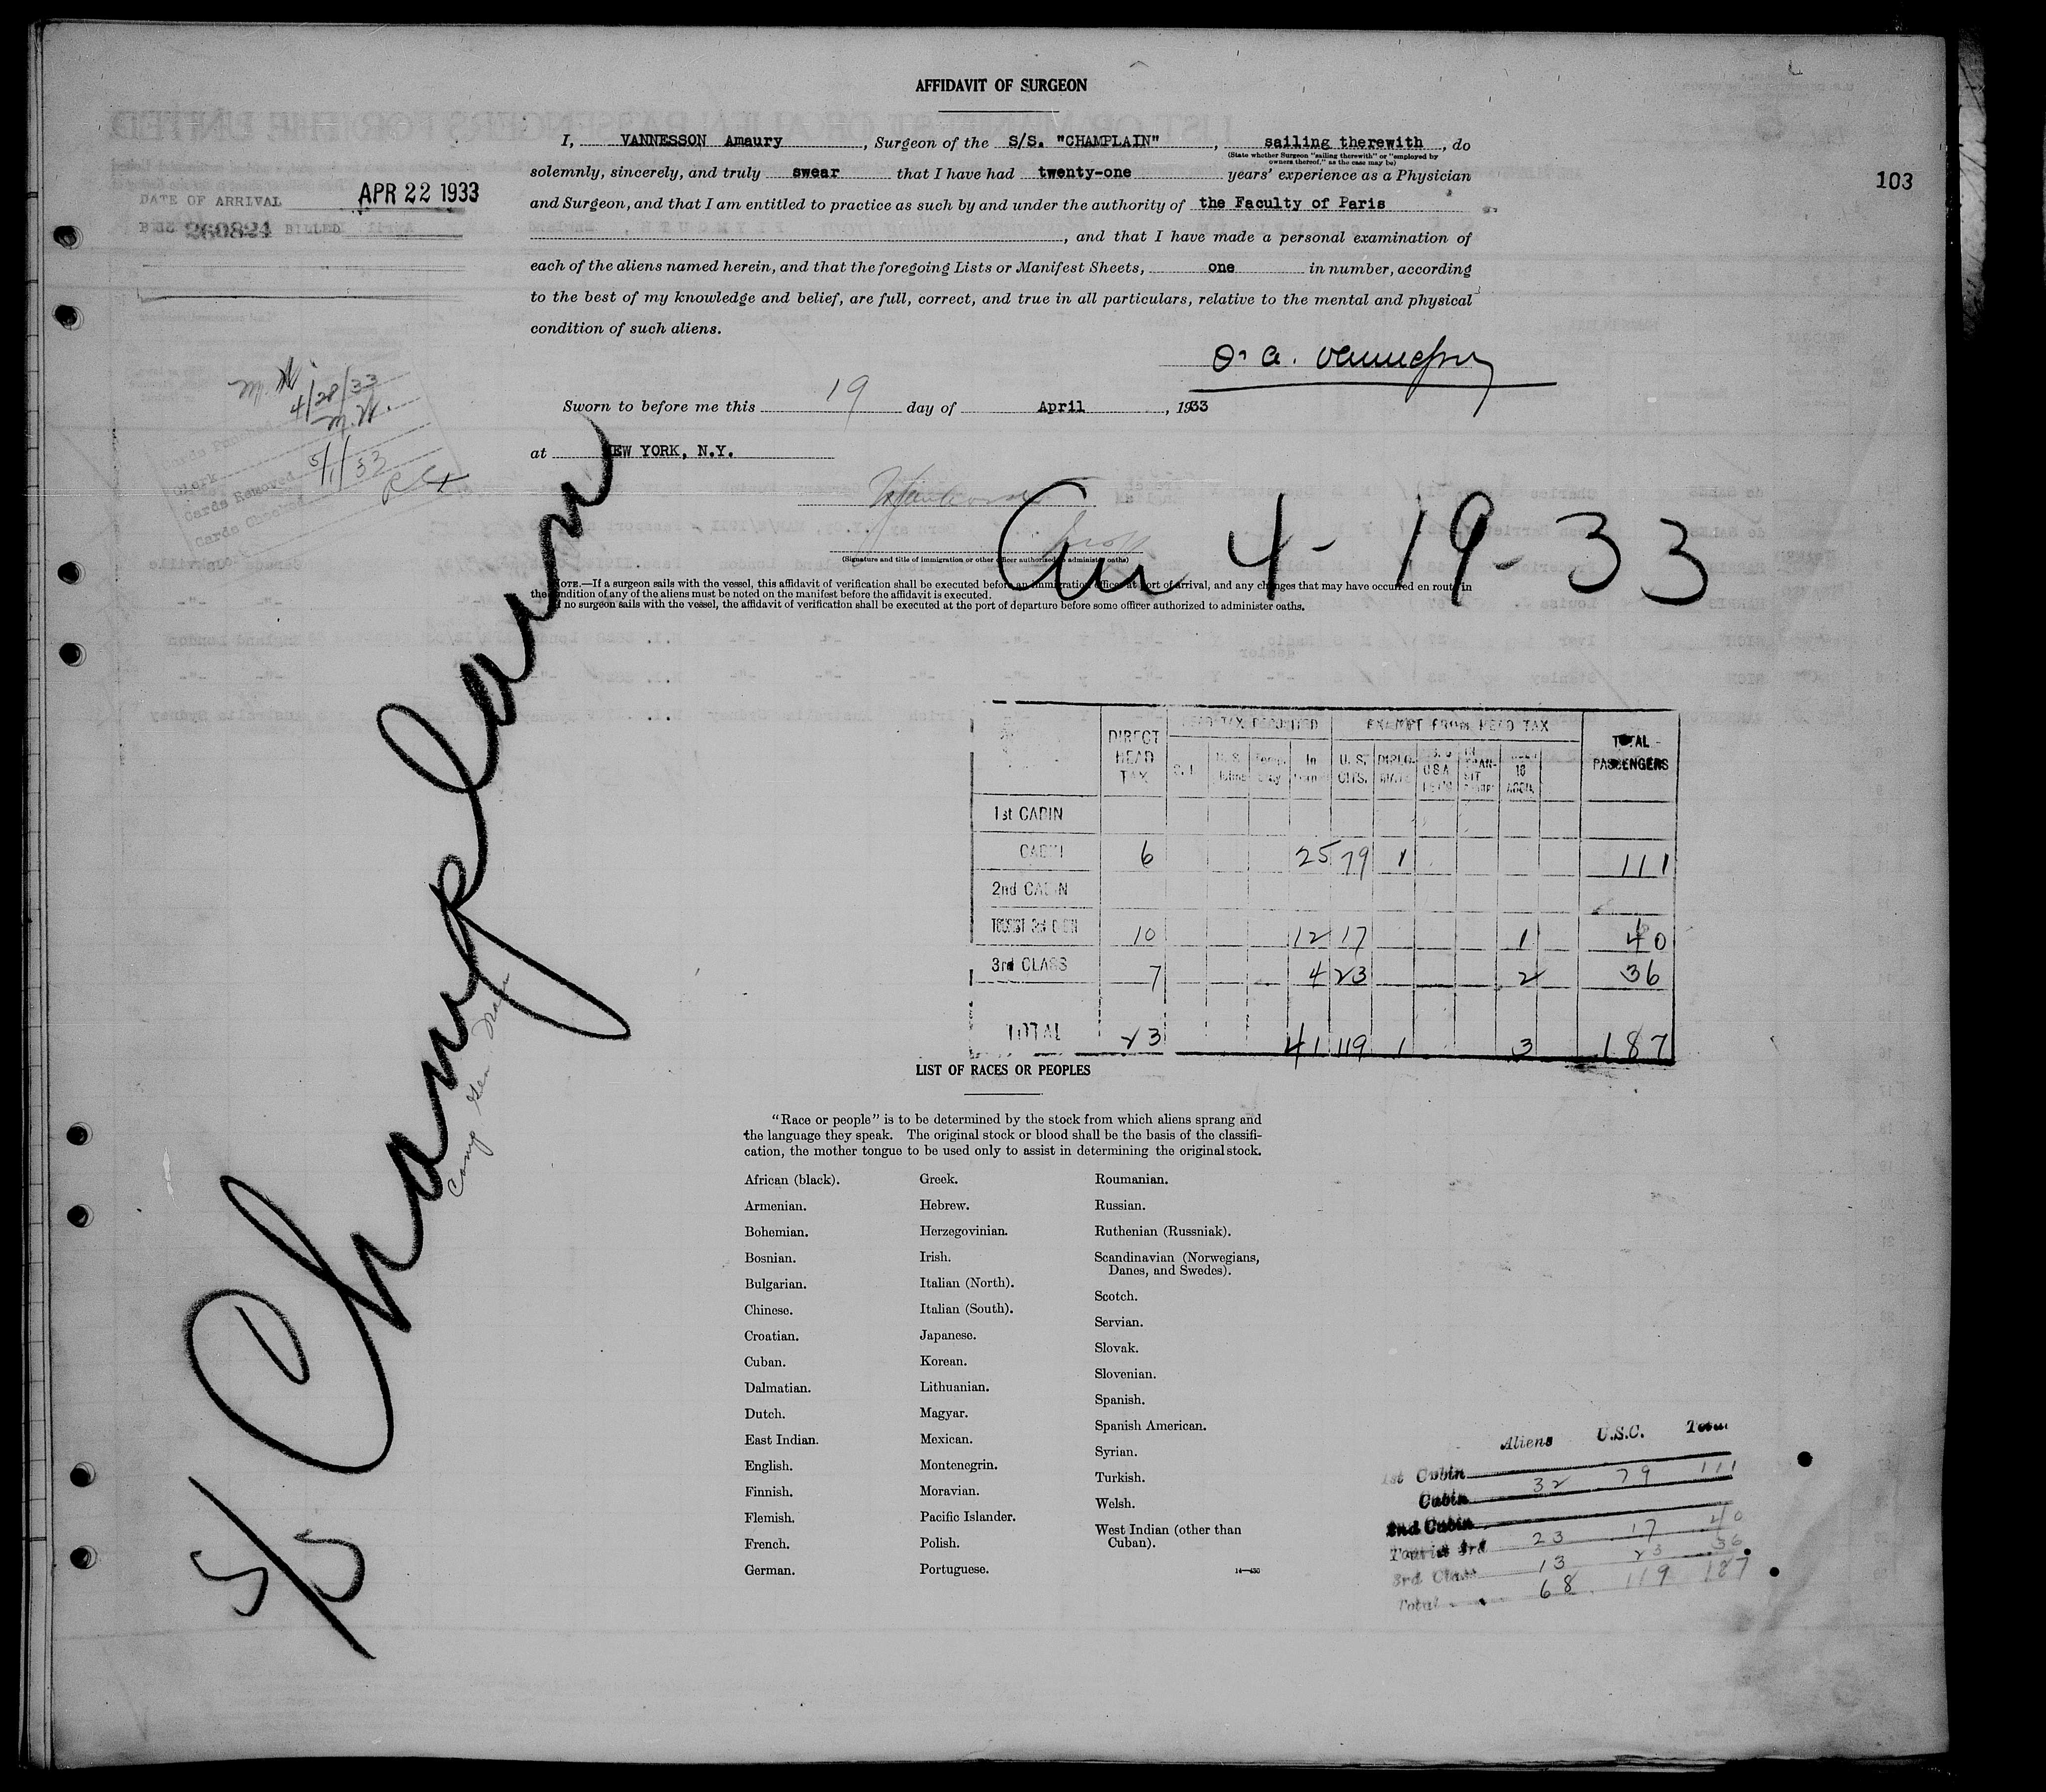 AFFIDAVIT OF SURGEON
I, VANNESSON Amaury, Surgeon of the S/S. "CHAMPLAIN", sailing therewith, do
(State whether Surgeon "sailing therewith" or "employed by
owners thereof," as the case may be)
solemnly, sincerely, and truly swear that I have had twenty-one years' experience as a Physician
and Surgeon, and that I am entitled to practice as such by and under the authority of the Faculty of Paris
, and that I have made a personal examination of
each of the aliens named herein, and that the foregoing Lists or Manifest Sheets, one in number, according
to the best of my knowledge and belief, are full, correct, and true in all particulars, relative to the mental and physical
condition of such aliens.
103
DATE OF ARRIVAL APR 22 1933
260824 BILLED
M.W.
4/28/33
M.W.
Clerk
Cards Removed 5/1/33
Cards Checked
Sworn to before me this 19 day of April, 1933
at NEW YORK, N.Y.
Arr 4-19-33
(Signature and title of immigration or other officer authorized to administer oaths)
NOTE.—If a surgeon sails with the vessel, this affidavit of verification shall be executed before an immigration officer at port of arrival, and any changes that may have occurred en route in
the condition of any of the aliens must be noted on the manifest before the affidavit is executed.
If no surgeon sails with the vessel, the affidavit of verification shall be executed at the port of departure before some officer authorized to administer oaths.
S/S Champlain
Comp Gen
DIRECT HEAD TAX HEAD TAX REQUIRED EXEMPT FROM HEAD TAX TOTAL PASSENGERS
In U.S. CITS. DIPLO U.S.A. TRANSIT 16
1st CABIN
CABIN 6 25 79 1 111
2nd CABIN
TOURIST 3rd CABIN 10 12 17 1 40
3rd CLASS 7 4 23 2 36
TOTAL 23 41 119 1 3 187
LIST OF RACES OR PEOPLES
"Race or people" is to be determined by the stock from which aliens sprang and
the language they speak. The original stock or blood shall be the basis of the classifi-
cation, the mother tongue to be used only to assist in determining the original stock.
African (black).
Armenian.
Bohemian.
Bosnian.
Bulgarian.
Chinese.
Croatian.
Cuban.
Dalmatian.
Dutch.
East Indian.
English.
Finnish.
Flemish.
French.
German.
Greek.
Hebrew.
Herzegovinian.
Irish.
Italian (North).
Italian (South).
Japanese.
Korean.
Lithuanian.
Magyar.
Mexican.
Montenegrin.
Moravian.
Pacific Islander.
Polish.
Portuguese.
Roumanian.
Russian.
Ruthenian (Russniak).
Scandinavian (Norwegians,
Danes, and Swedes).
Scotch.
Servian.
Slovak.
Slovenian.
Spanish.
Spanish American.
Syrian.
Turkish.
Welsh.
West Indian (other than
Cuban).
14—430
Aliens U.S.C. Total
1st Cabin
Cabin 32 79 111
2nd Cabin
Tourist 3rd 23 17 40
3rd Class 13 23 36
Total 68 119 187